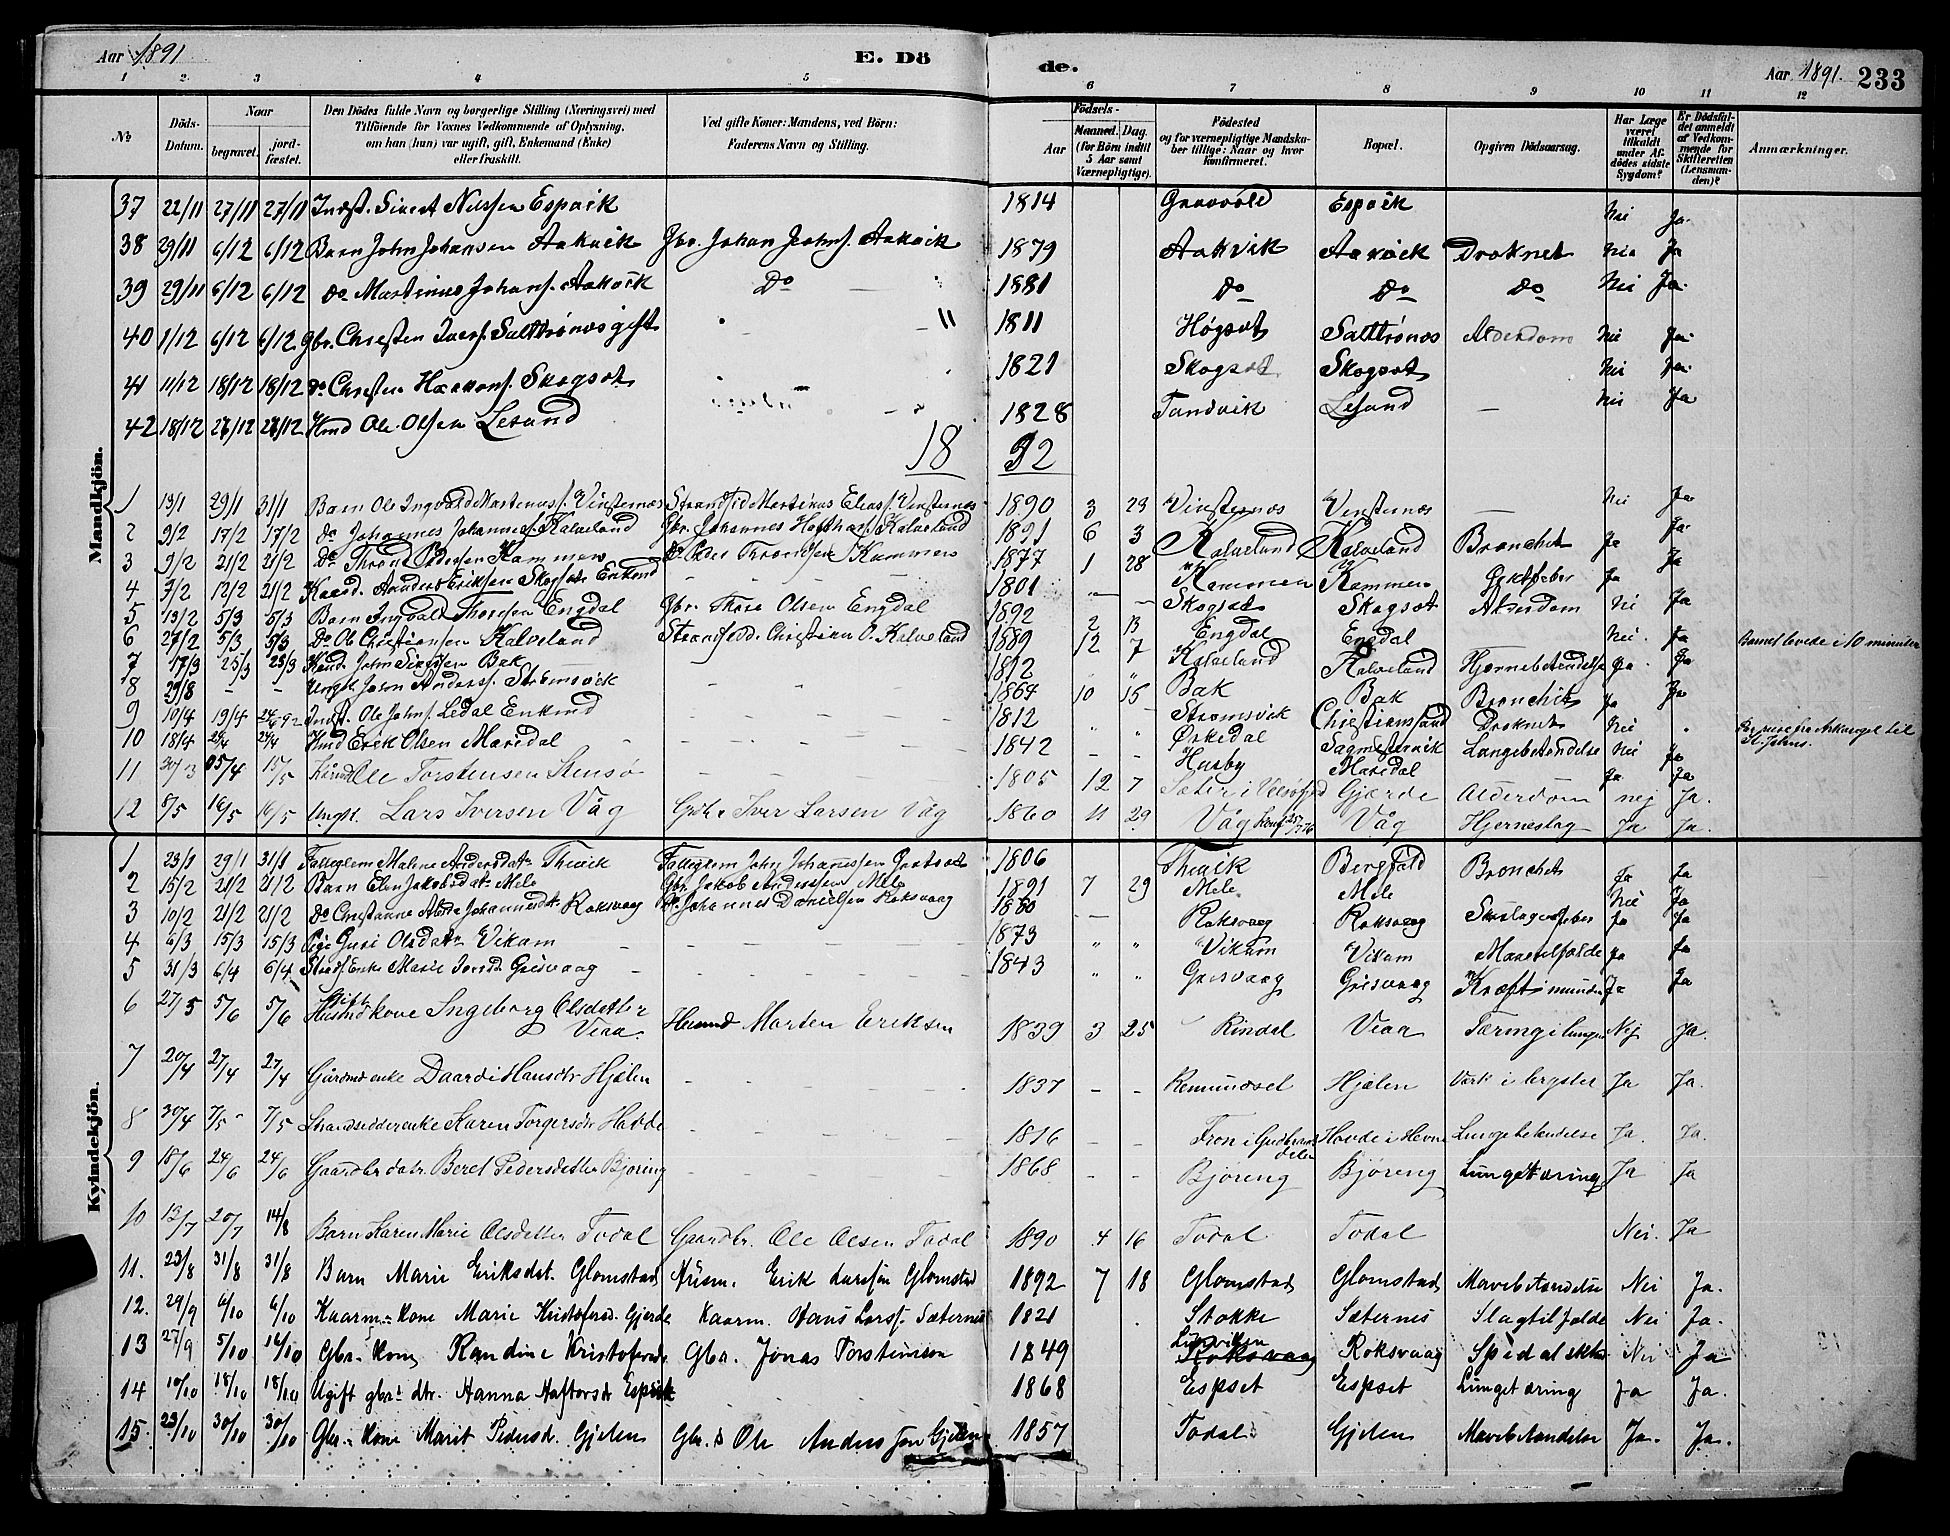 Aar 1891
E. Dö
de.
Aar 1891. 233
1 2 3 4 5 6 7 8 9 10 11 12
№
Döds-Datum.
Naar
begravet.
jord-fæstet.
Den Dödes fulde Navn og borgerlige Stilling (Næringsvei) med
Tilföiende for Voxnes Vedkommende af Oplysning,
om han (hun) var ugift, gift, Enkemand (Enke)
eller fraskilt.
Ved gifte Koner: Mandens, ved Börn:
Faderens Navn og Stilling.
Födsels-
Aar
Maaned. Dag.
(for Börn indtil
5 Aar samt
Værnepligtige).
Födested
og for værnepligtige Mandska-
ber tillige: Naar og hvor
konfirmeret.
Bopæl.
Opgiven Dödsaarsag.
Har Læge
været
tilkaldt
under Af-
dödes sidste
Sygdom?
Er Dödsfal-
det anmeldt
af Vedkom-
mende for
Skifteretten
(Lensman-
den)?
Anmærkninger.
Mandkjön.
37 22/11 27/11 27/11 Indst. Sivert Nilssen Espvik 1814 Espvik Nei Ja.
38 29/11 6/12 6/12 Barn John Johansen Aakvik Gbr. Johan Johns. Aakvik 1879 Aakvik Aakvik Droknet Nei Ja
39 29/11 6/12 6/12 Do Martinus Johans. Aakvik Do 1881 Do Do Do Nei Ja.
40 1/12 6/12 6/12 Gbr. Christen Ivers. Salttrønes gift 1811 Høgset Salttrønes Alderdom Nei Ja.
41 11/12 18/12 18/12 Do Christen Haakons. Skogset 1821 Skogset Skogset Nei Ja.
42 18/12 27/12 27/12 Hmd Ole Olsen Lesund 1828 Tandvik Lesund — Nei Ja
18 92
1 13/1 29/1 31/1 Barn Ole Ingvald Martinus. Vinsternes Strandsid Martinus Elias. Vinsternes 1890 3 23 Vinsternes Vinsternes — Nei Ja
2 9/2 17/2 17/2 Do Johannes Johannes. Kalveland Gbr. Johannes Kalveland 1891 6 3 Kalveland Kalveland Bronchit Ja Ja
3 9/2 21/2 21/2 Do Thron Pedersen Kammen Do Peder Throndsen Kammen 1877 1 28 Kammen Kammen Ja Ja
4 3/2 12/2 21/2 Kaard. Anders Eriksen Skogset Enkmd 1801 Skogset Skogset Alderdom Nei Ja
5 13/2 5/3 5/3 Barn Ingvald Thoresen Engdal Gbr. Thore Olsen Engdal 1892 2 13 Engdal Engdal Nei. Ja Barnet levede i 10 minuter
6 27/2 5/3 5/3 Do Ole Christiansen Kalveland Strandsidd. Christian O. Kalveland 1889 12 7 Kalveland Kalveland Hjernebetændelse Ja. Ja
7 17/3 25/3 25/3 John Bak 1812 Bak Bak Bronchit Ja Ja
8 29/8 - - Ungk. John Anders. Strømsvik 1864 10 15 Strømsvik Christianssund Droknet Nei Arkangel til
9 10/4 19/4 24/6 92 Indst. Ole Johns. Ledal Enkmd 1812 Ørkedal Lungebetændelse Nei Ja
10 18/4 24/4 24/4 Hmd Erik Olsen Maridal 1842 Husby Maridal Ja Ja
11 15/5 Ole Torstensen Stensø 1805 12 7 Gjærde Alderdom nej Ja.
12 5/5 16/5 16/5 Ungk. Lars Iversen Våg Iver Larsen Våg 1860 11 29 Våg Våg Hjerneslag Ja Ja.
Kvindekjön.
1 23/1 29/1 31/1 Fattiglem Malene Andersdatr Thevik Fattiglem John Johanssen 1806 Thevik Bergfald Bronchit Ja Ja
2 15/2 21/2 21/2 Barn Elen Jakobsdatr Mele Gbr. Jakob Anderssen Mele 1891 7 29 Mele Mele Nei Ja
3 10/2 21/2 21/2 Do Christianne Johannesdtr Roksvaag Do Johannes Danielsen Roksvaag 1880 — Roksvaag Roksvaag Ja Ja
4 6/3 15/3 15/3 Pige Guri Olsdatr Vikam 1873 Vikam Vikam Ja Ja
5 31/3 6/4 6/4 Enke Marie Gresvaag 1843 Gresvaag Gresvaag Kræft i Ja Ja
6 27/5 5/6 5/6 Gift Husmdkone Ingeborg Olsdatter
Viaa. Husmd Morten Eriksen 1839 3 25 Rindal Viaa Tæring i Lungen Nej Ja.
7 20/4 27/4 27/4 Gårdmd enke Daardi Hansdtr Hjælen 1837 — — Romundset Hjælen Værk i brystet Ja Ja.
8 30/4 7/5 7/5 Strandsidderenke Karen Torgersdtr Hovde 1816 — — Fron i Gudbrands
dalen Hovde i Hevne Lungebetændelse Ja. Ja.
9 18/6 24/6 24/6 Gaardbr datr. Beret Pedersdatter Bjøring 1868 — — Bjøreng Bjøreng Lungetæring Ja Ja
10 13/7 20/7 14/8 Barn Karen Marie Olsdatter Todal Gaardbr. Ole Olsen Todal 1890 4 16 Todal Todal Nei. Ja
11. 23/8 31/8 31/8 Barn Marie Eriksdt. Glomstad Husm. Erik Larsen Glomstad 1892 7 18 Glomstad Glomstad Mavebetændelse Nei Ja.
12. 29/9 6/10 6/10 Kaarm.-kone Marie Kristofersd. Gjerde Kaarm. Hans Larss. Sæternes 1821 Stokke Sæternes Slagtilfælde Nei Ja.
13 27/9 5/10 14/10 Gbr.-kone Randine Kristofersd Gbr. Jonas Torstensen 1849 Roksvaag Roksvaag Spedalskhed Nei Ja
14 10/10 18/10 18/10 Ugift gbr. dtr. Hanna Haftorsdr Espset 1868 Espset Espset Lungetæring Ja Ja.
15. 23/10 30/10 30/10 Gbr.-kone Marit Pedersd. Gjelen Gbr. Ole Anderssen Gjelen 1857 Todal Gjelen Mavebetændelse Ja. Ja.